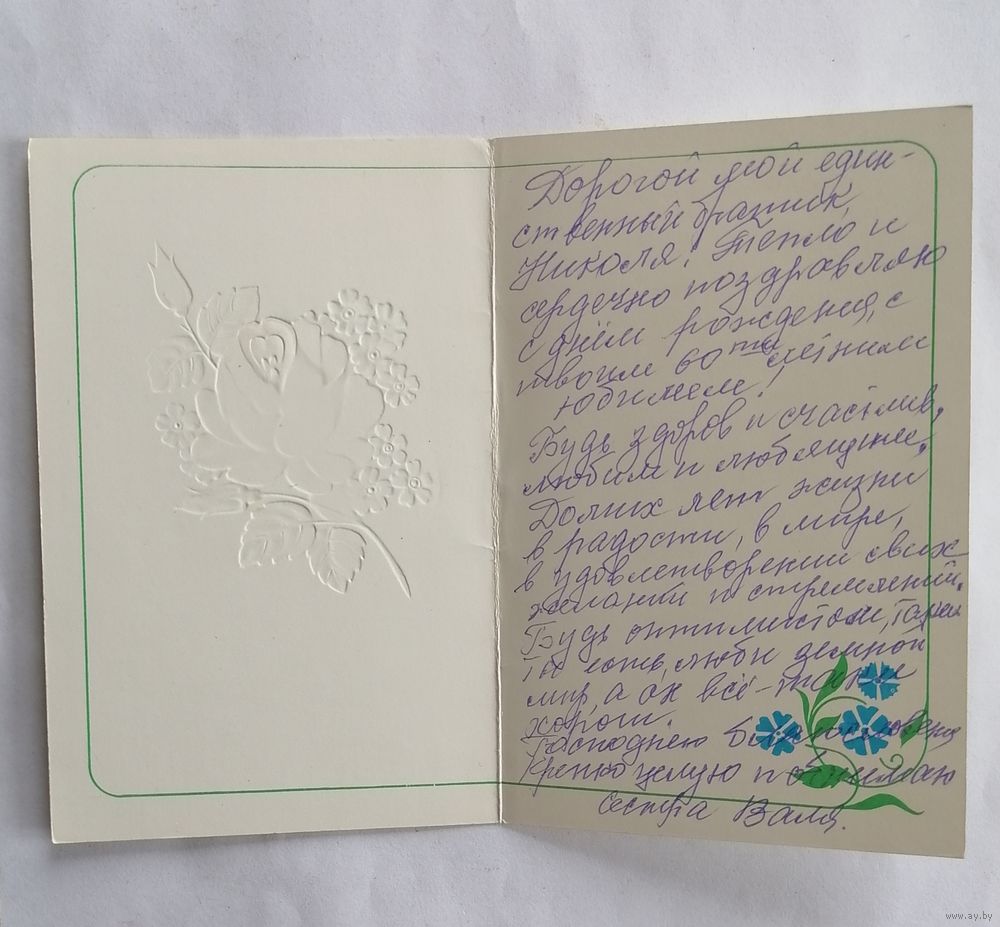 Дорогой мой един-
ственный братик,
Николя! Тепло и
сердечно поздравляю
с днём рождения, с
твоим 60 ти летним
юбилеем!
Будь здоров и счастлив,
любим и любящим.
Долгих лет жизни
в радости, в мире,
в удовлетворении своих
желаний и стремлений.
Будь оптимистом,
ты есть, люби земной
мир, а он всё-таки
хорош.
Господнего благословения
Крепко целую и обнимаю
сестра Валя.
www.ay.by